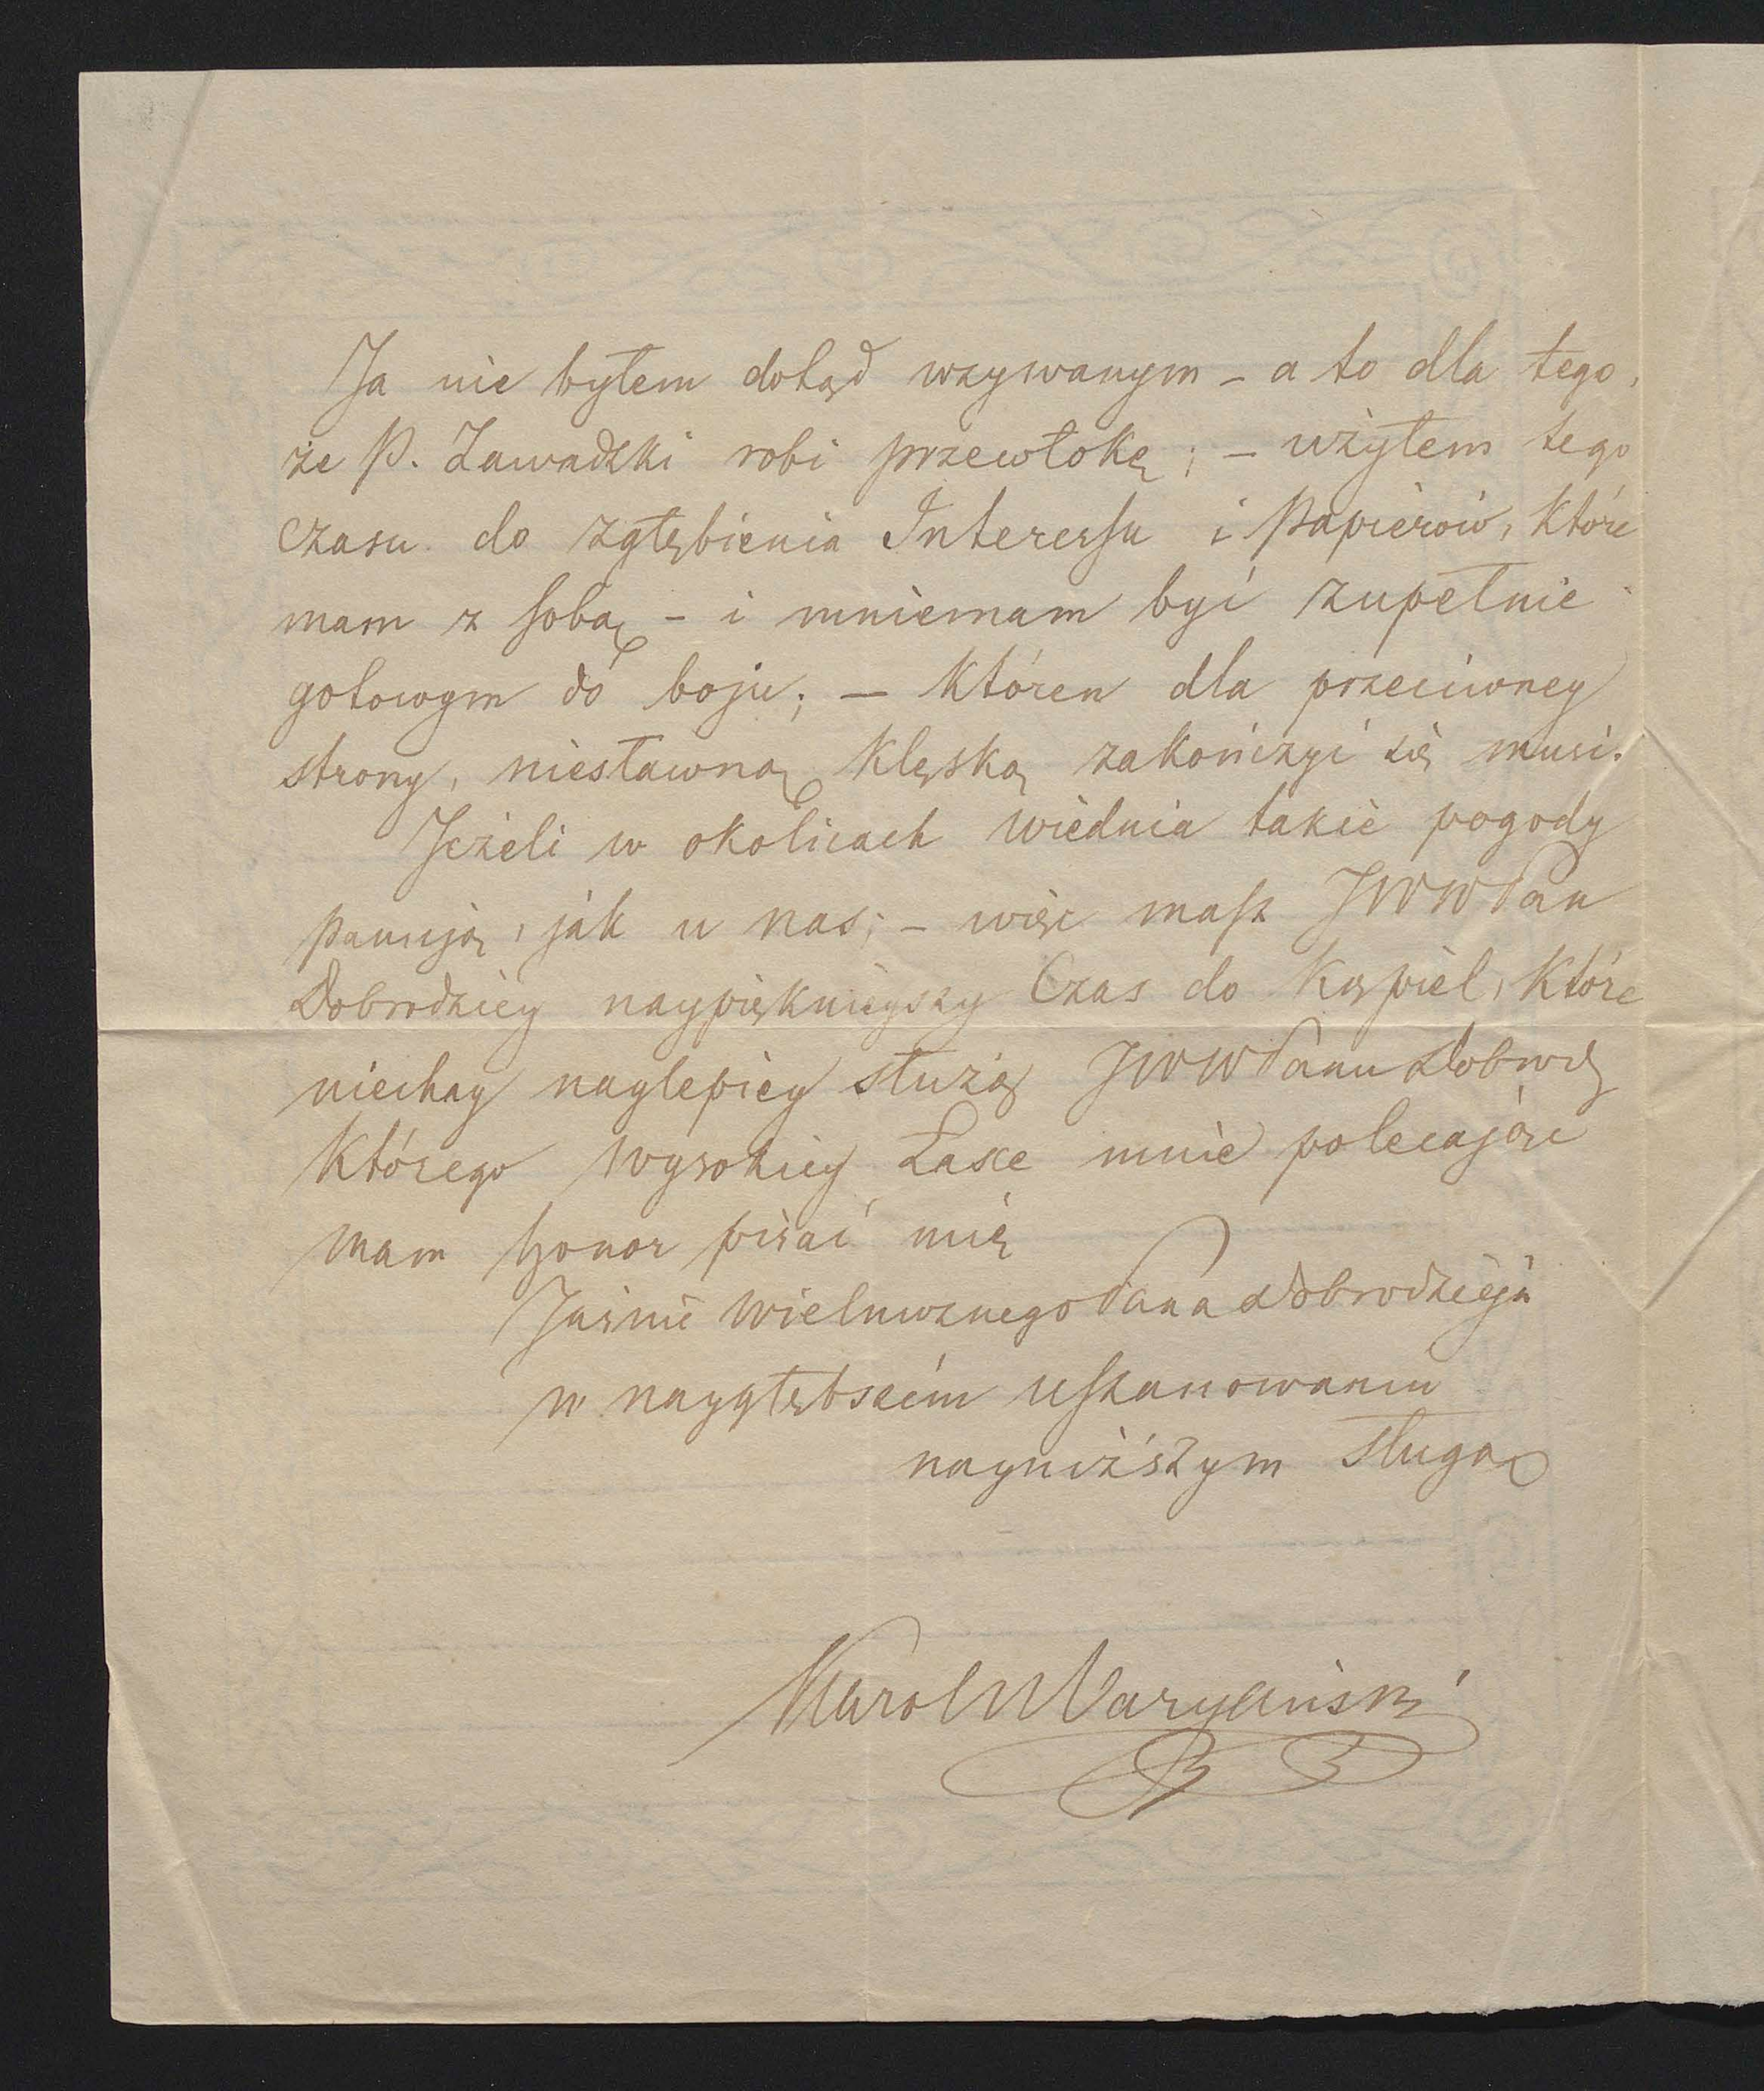 Ja nie byłem dotąd wzywanym – a to dla tego,
że P. Zawadzki robi przewłokę; – użyłem tego
czasu do zgłębienia Interessu i Papierów, które
mam z sobą – i mniemam być zupełnie
gotowym do boju; – któren dla przeciwney
strony, niesławną klęską zakończyć się musi.
Jeżeli w okolicach Wiednia takie pogody
panują, jak u nas; – więc masz JWWPan
Dobrodziey naypięknieyszy Czas do Kąpiel, które
niechay naylepiey służą JWWPanu Dobrodz
którego wysokiey Łasce mnie polecając
mam honor pisać mię
Jaśnie Wielmożnego Pana Dobrodzieja
w naygłębszém uszanowaniu
nayniższym sługą
Karol Maryański